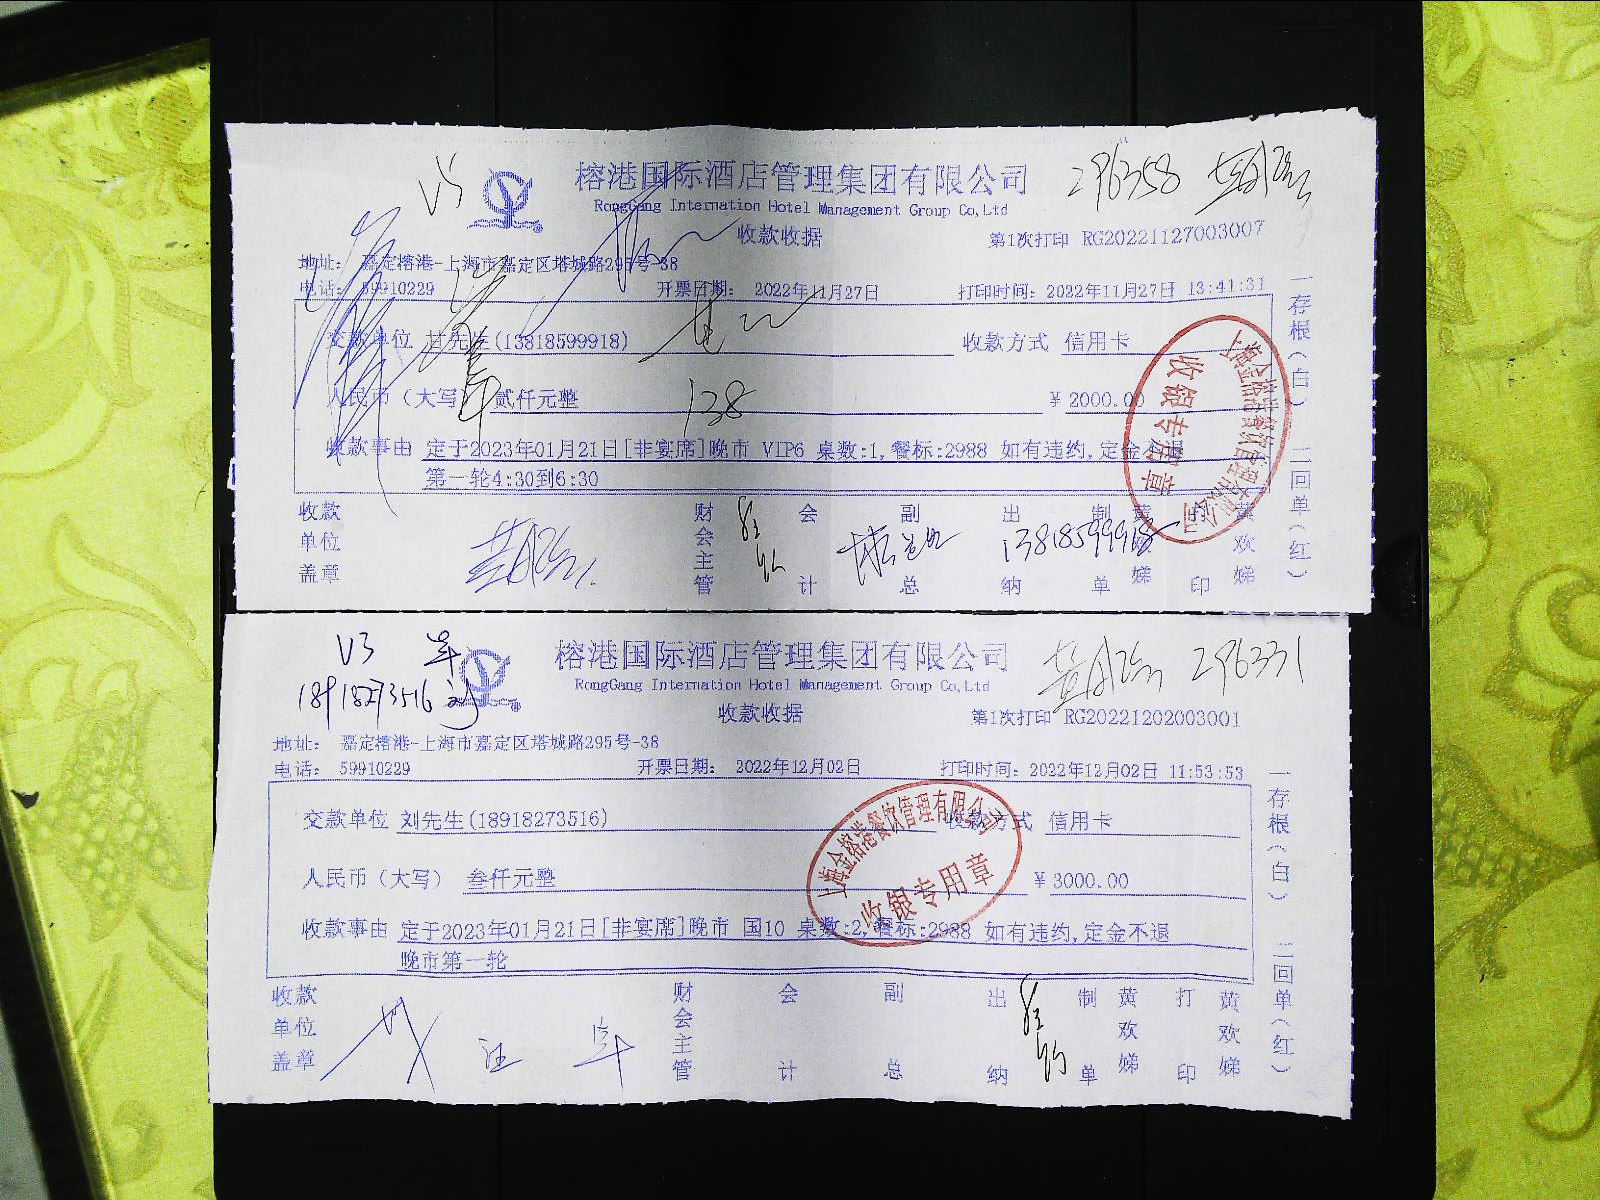 V3
榕港国际酒店管理集团有限公司 296358
RongGang Internation Hotel Management Group Co,Ltd
收款收据 第1次打印 RG20221127003007
地址: 嘉定榕港-上海市嘉定区塔城路295号-38
电话: 59910229 开票日期: 2022年11月27日 打印时间: 2022年11月27日 13:41:31
交款单位 甘先生(13818599918) 收款方式 信用卡
人民币(大写) 贰仟元整 ¥ 2000.00
138
收款事由 定于2023年01月21日[非宴席]晚市 VIP6 桌数:1,餐标:2988 如有违约,定金不退
第一轮4:30到6:30
收款单位盖章 财会主管 会计 副总 出纳 制单 黄欢娣 打印 黄欢娣
13818599918
一存根(白) 二回单(红)
收银专用章
V3
18918273516 刘
榕港国际酒店管理集团有限公司 296331
RongGang Internation Hotel Management Group Co,Ltd
收款收据 第1次打印 RG20221202003001
地址: 嘉定榕港-上海市嘉定区塔城路295号-38
电话: 59910229 开票日期: 2022年12月02日 打印时间: 2022年12月02日 11:53:53
交款单位 刘先生(18918273516) 收款方式 信用卡
人民币(大写) 叁仟元整 ¥ 3000.00
收款事由 定于2023年01月21日[非宴席]晚市 国10 桌数:2,餐标:2988 如有违约,定金不退
晚市第一轮
上海金榕港餐饮管理有限公司
收银专用章
收款单位盖章 财会主管 会计 副总 出纳 制单 黄欢娣 打印 黄欢娣
一存根(白) 二回单(红)